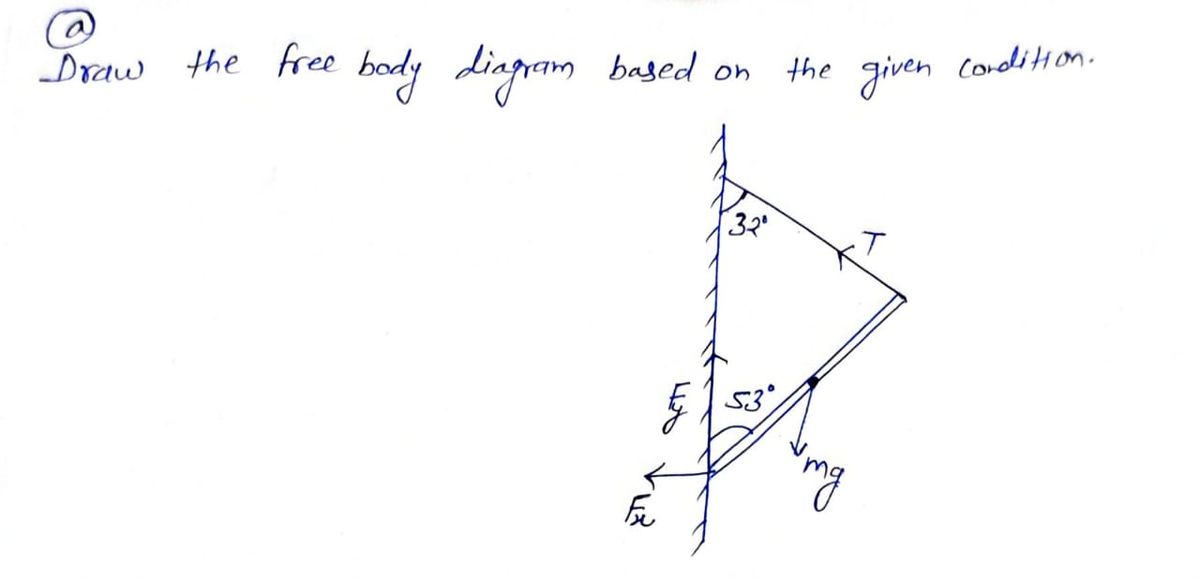 a
Draw the free body diagram based on the given condition.
32°
T
Fy
53°
mg
Fx